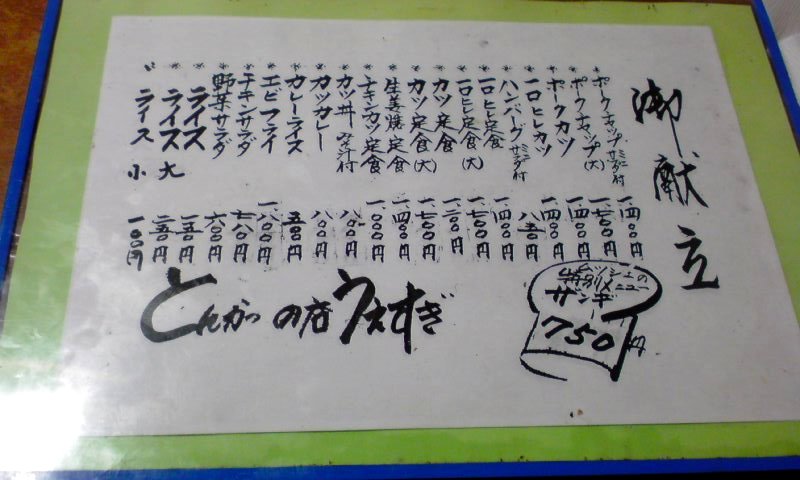 御献立
ポークチャップ ミニサラダ付 一、四〇〇円
ポークチャップ(大) 一、七〇〇円
ポークカツ 一、四〇〇円
一口ヒレカツ 一、四〇〇円
ハンバーグ ミニサラダ付 八五〇円
一口ヒレ定食 一、四〇〇円
一口ヒレ定食(大) 一、七〇〇円
カツ定食
カツ定食(大) 一、七〇〇円
生姜焼定食 一、四〇〇円
チキンカツ定食 一、〇〇〇円
カツ丼 みそ汁付
カツカレー 八〇〇円
カレーライス 五〇〇円
エビフライ 一、八〇〇円
チキンサラダ 七八〇円
野菜サラダ 六〇〇円
ライス 一五〇円
ライス 大 二五〇円
〃 ライス 小 一〇〇円
とんかつの店うえすぎ
特別メニュー
ザンギ
750円